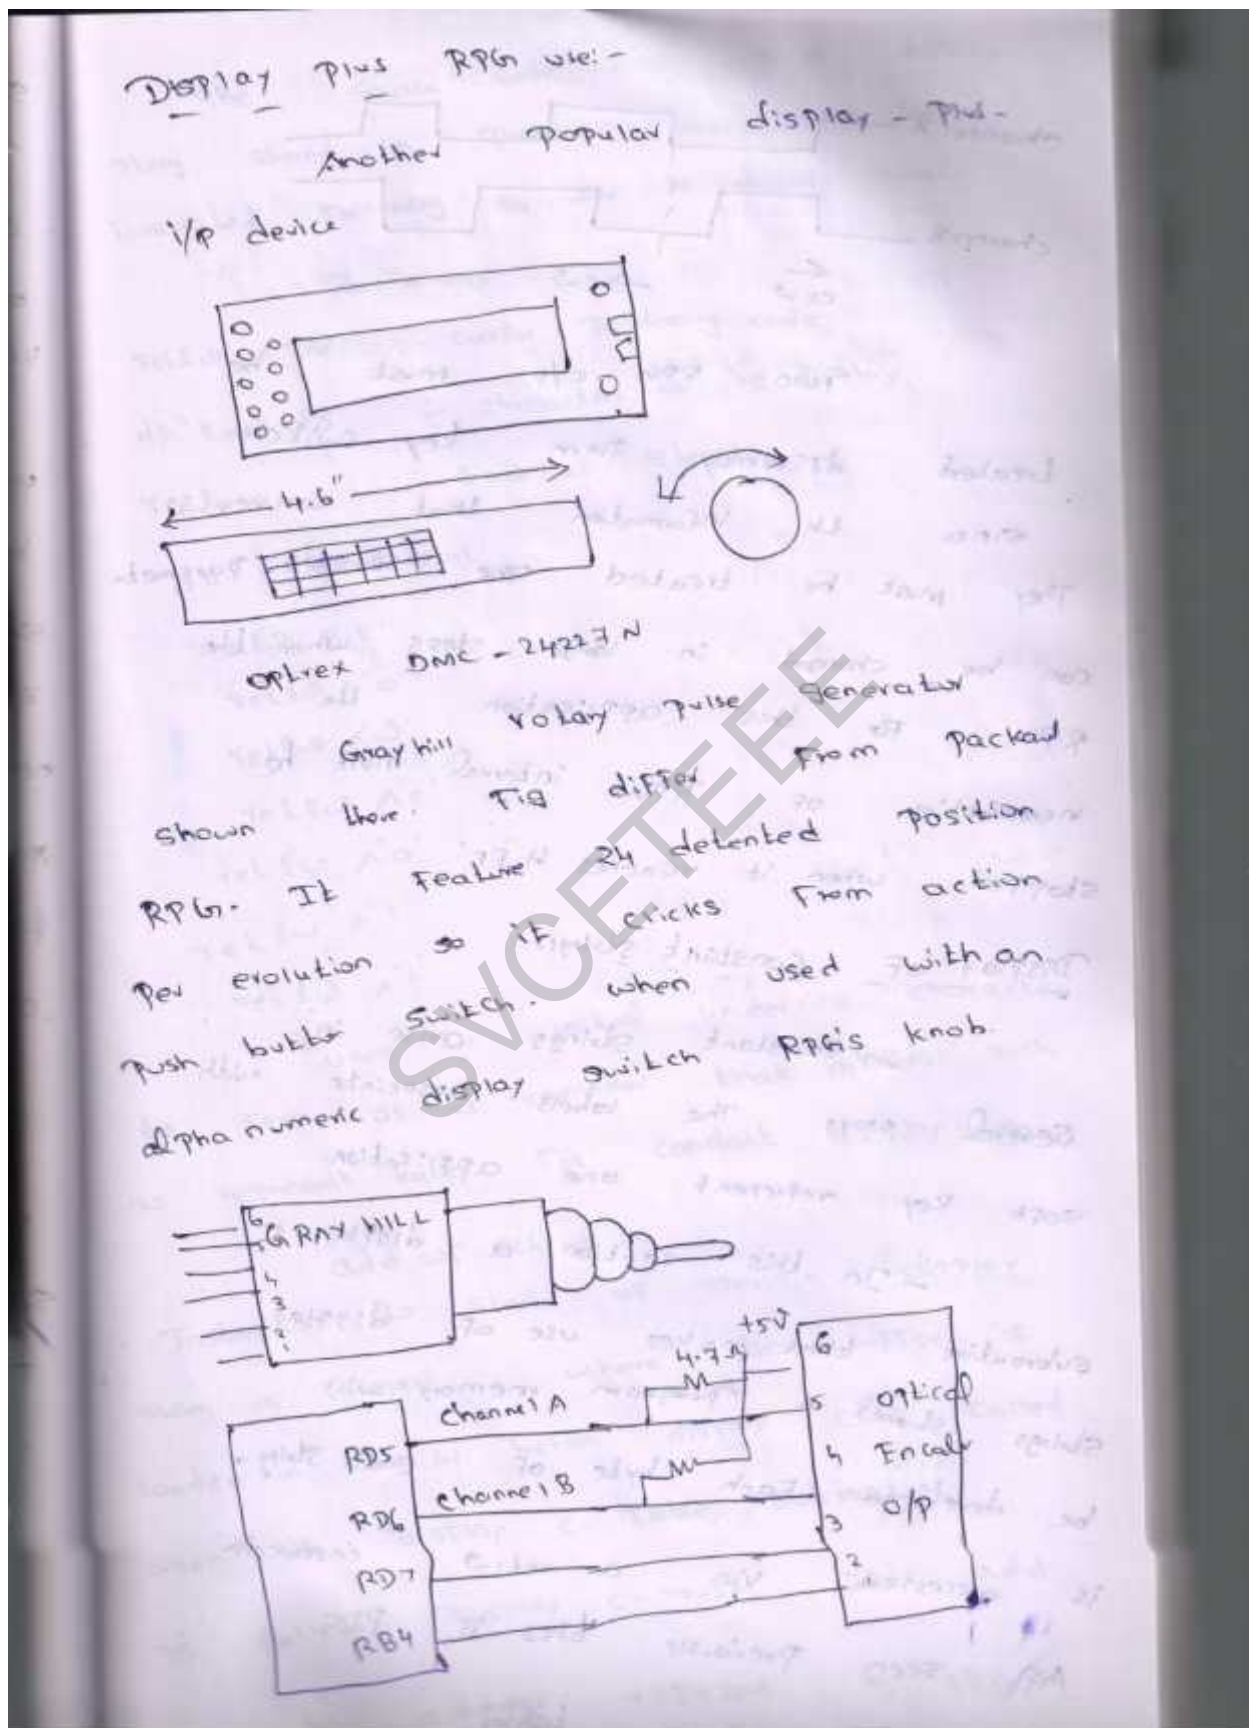 Display Plus RPG use:-
Another popular display - plus-
i/p device
4.6"
Optrex DMC - 24227 N
Grayhill rotary pulse generator
shown there. Fig differ from packad
RPG. It Feature 24 detented position
Per evolution so it cricks from action
push button switch. when used with an
alpha numeric display switch RPG's knob.
6
GRAY HILL
4
3
2
1
+5V
4.7Ω
6
Channel A
5
Optical
RD5
4
Channel B
O/P
RD6
3
RD7
2
1
RB4
SVCETEEE